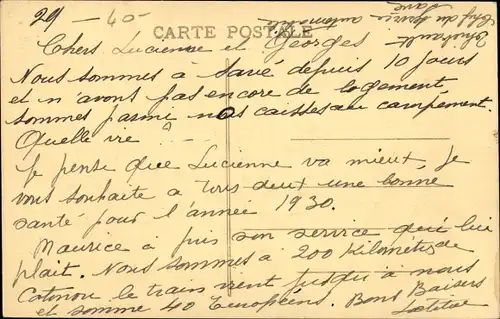 29 - 40
CARTE POSTALE
Chers Lucienne et Georges -
Nous sommes à Savé depuis 10 jours
et n'avons pas encore de logement,
sommes parmi nos caisses au campement.
Quelle vie ? -
Je pense que Lucienne va mieux, je
vous souhaite a tous deux une bonne
santé pour l'année 1930.
Maurice à pris son service qui lui
plait. Nous sommes à 200 Kilomètres de
Cotonou le train vient jusqu'à nous
et somme 40 Européens. Bons Baisers
Chef du Service
automobile
Savé